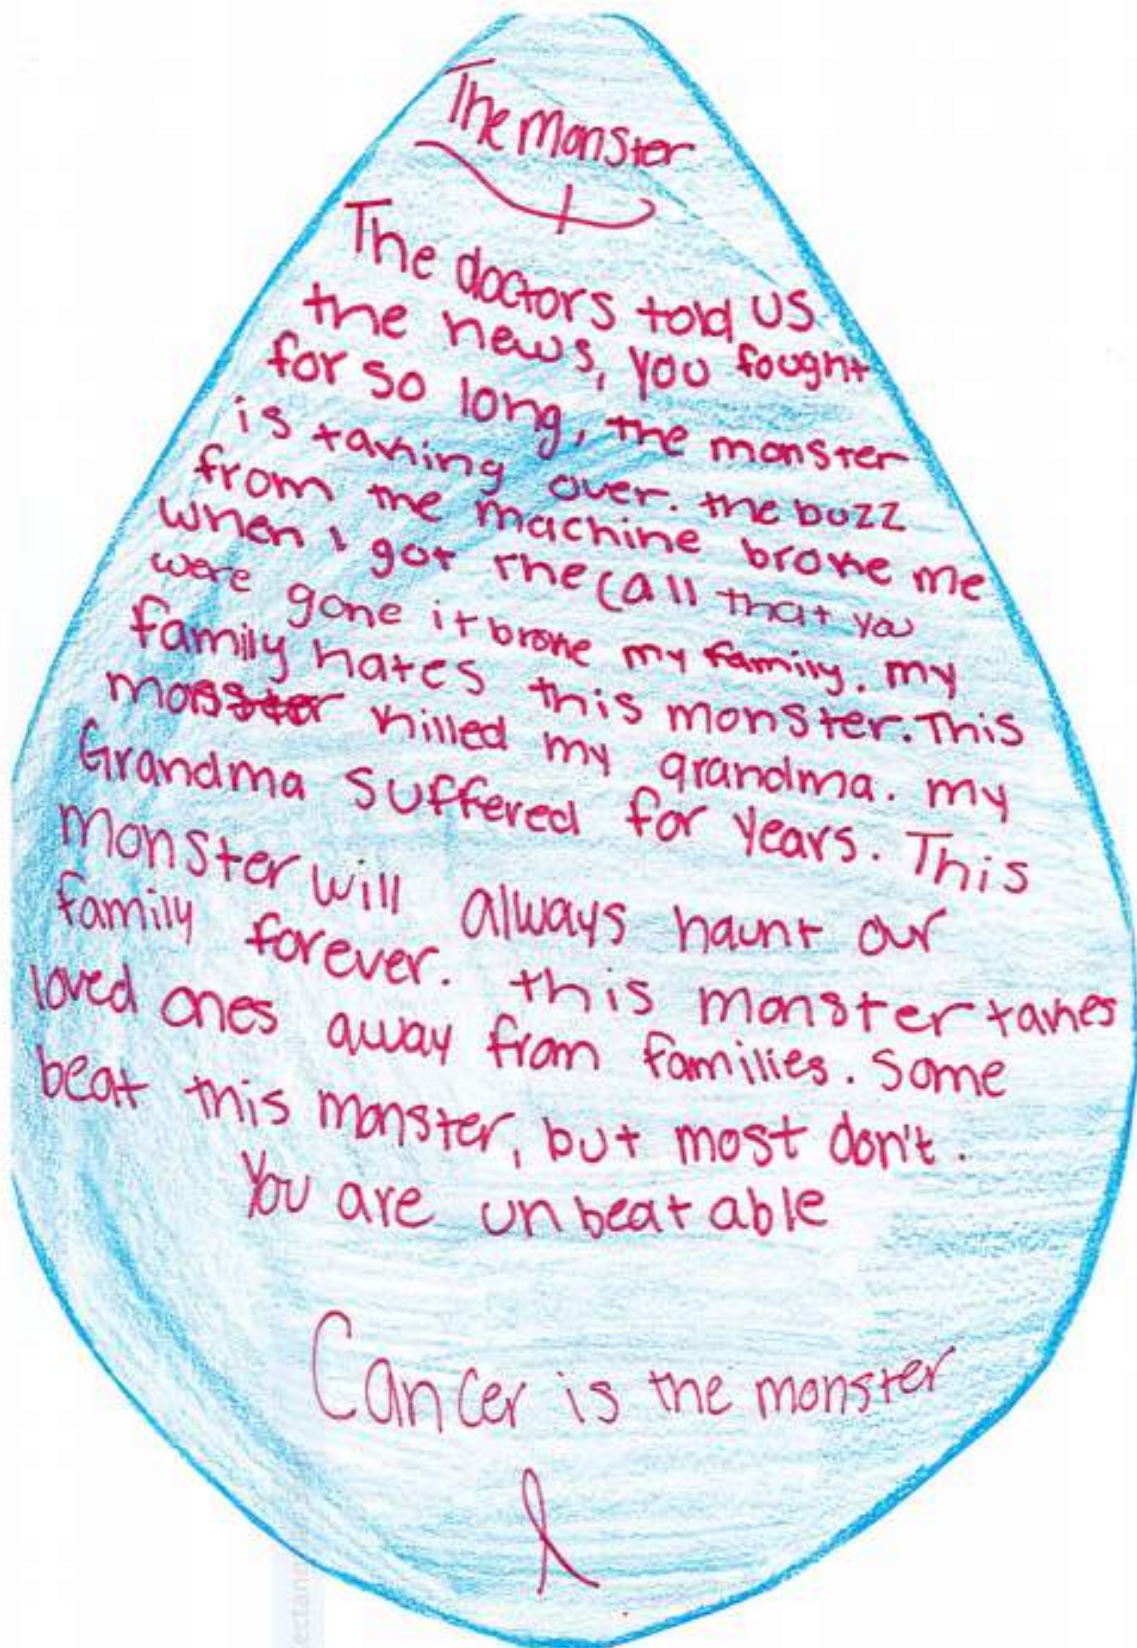 The Monster
The doctors told us
the news, you fought
for so long, the monster
is taking over. the buzz
from the machine broke me
when i got the call that you
were gone it broke my family. my
family hates this monster. This
monster killed my grandma. my
Grandma suffered for years. This
Monster will always haunt our
family forever. this monster takes
loved ones away from families. Some
beat this monster, but most don't.
You are unbeatable
Cancer is the monster